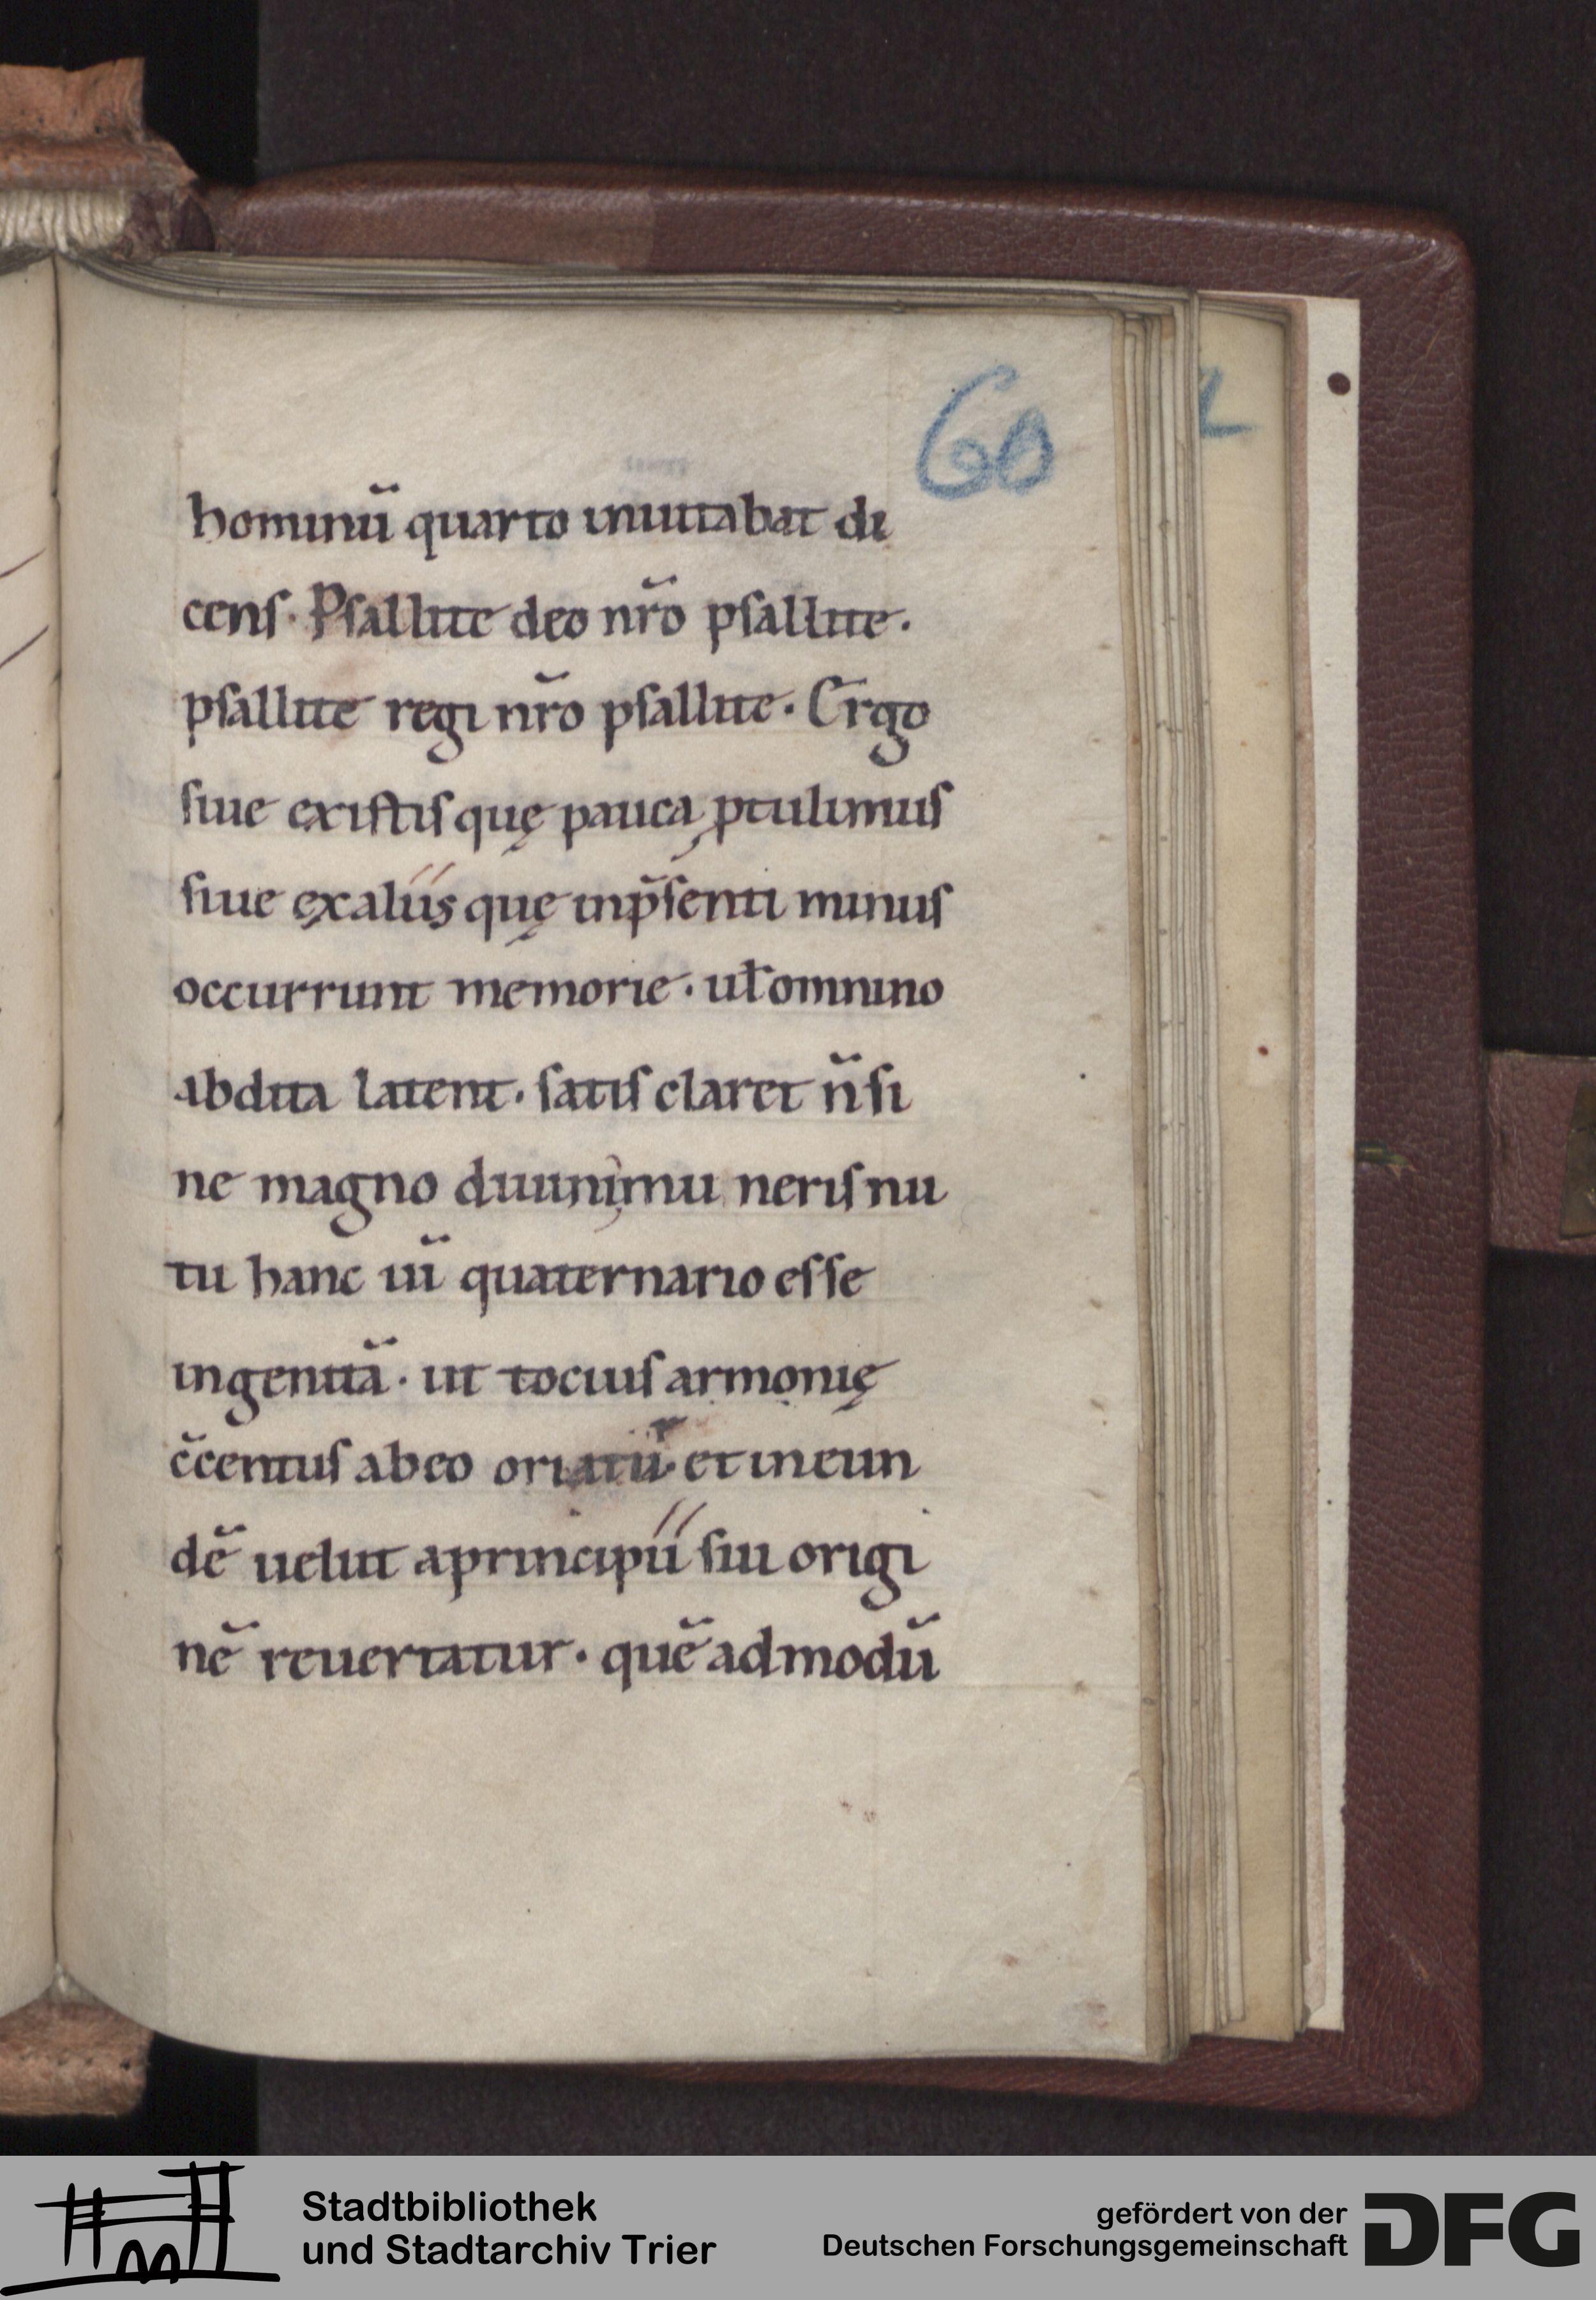 60
hominū quarto inuitabat di
cens. Psallite deo nr̄o psallite.
psallite regi nr̄o psallite. Ergo
siue existis quę pauca ptulimus
siue exaliis quę inp̄senti minus
occurrunt memorie. ul̄ omnino
abdita latent. satis claret n̄ si
ne magno diuini mu neris nu
tu hanc uī quaternario esse
ingenitā. ut tocius armonię
c̄centus abeo oriatū et in eun
dē uelut aprincipii sui origi
nē reuertatur. quē admodū
Stadtbibliothek
und Stadtarchiv Trier
gefördert von der
Deutschen Forschungsgemeinschaft
DFG